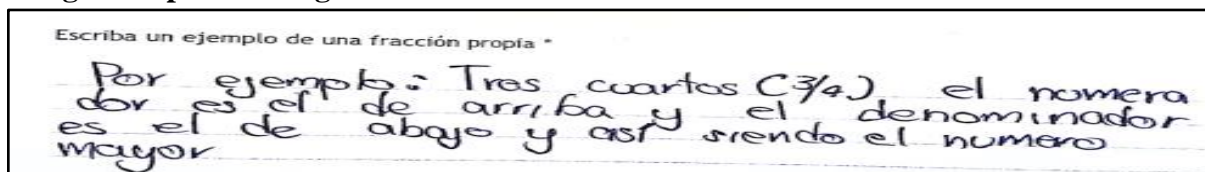 Escriba un ejemplo de una fracción propia *
Por ejemplo: Tres cuartos (3/4) el numera
dor es el de arriba y el denominador
es el de abajo y así siendo el numero
mayor